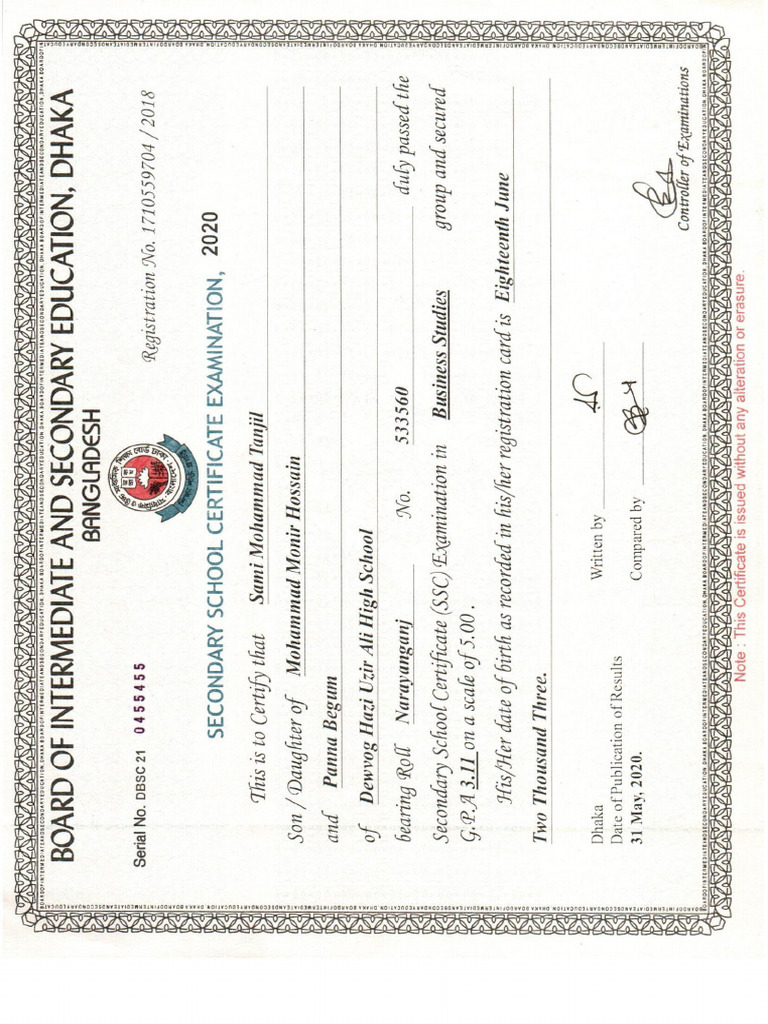 BOARD OF INTERMEDIATE AND SECONDARY EDUCATION, DHAKA
BANGLADESH
Serial No. DBSC 21 0455455
Registration No. 1710559704 / 2018
SECONDARY SCHOOL CERTIFICATE EXAMINATION, 2020
This is to Certify that Sami Mohammad Tanjil
Son / Daughter of Mohammad Monir Hossain
and Panna Begum
of Dewvog Hazi Uzir Ali High School
bearing Roll Narayanganj No. 533560 duly passed the
Secondary School Certificate (SSC) Examination in Business Studies group and secured
G.P.A 3.11 on a scale of 5.00 .
His/Her date of birth as recorded in his/her registration card is Eighteenth June
Two Thousand Three.
Dhaka
Date of Publication of Results
31 May, 2020.
Written by
Compared by
Controller of Examinations
Note : This Certificate is issued without any alteration or erasure.